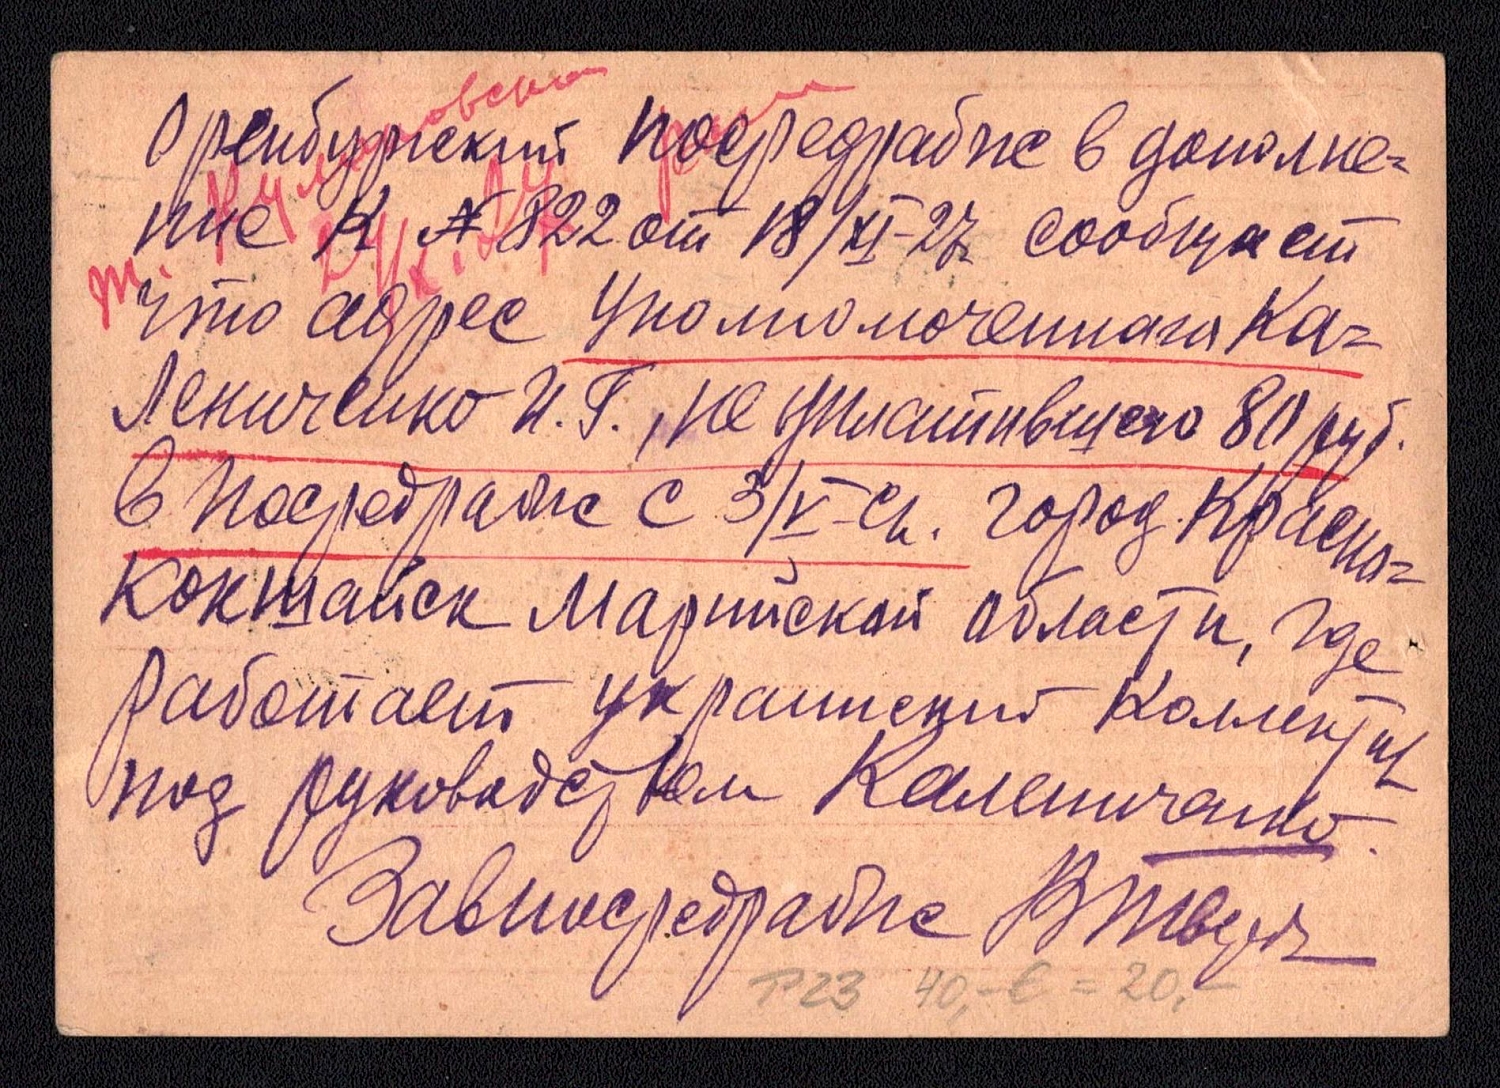 Оренбургский Посредрабис в дополне=
ние к № 822 от 18/XI-27 сообщает
что адрес Уполномоченнаго Ка=
Лениченко И.Г., не уплатившего 80 руб.
в Посредрабис с 3/V-
город Красно=
кокшайск Марийской области, где
работает украинский Коллектив
под руководством Калениченко.
Завпосредрабис
Р23 40,-€ = 20,-